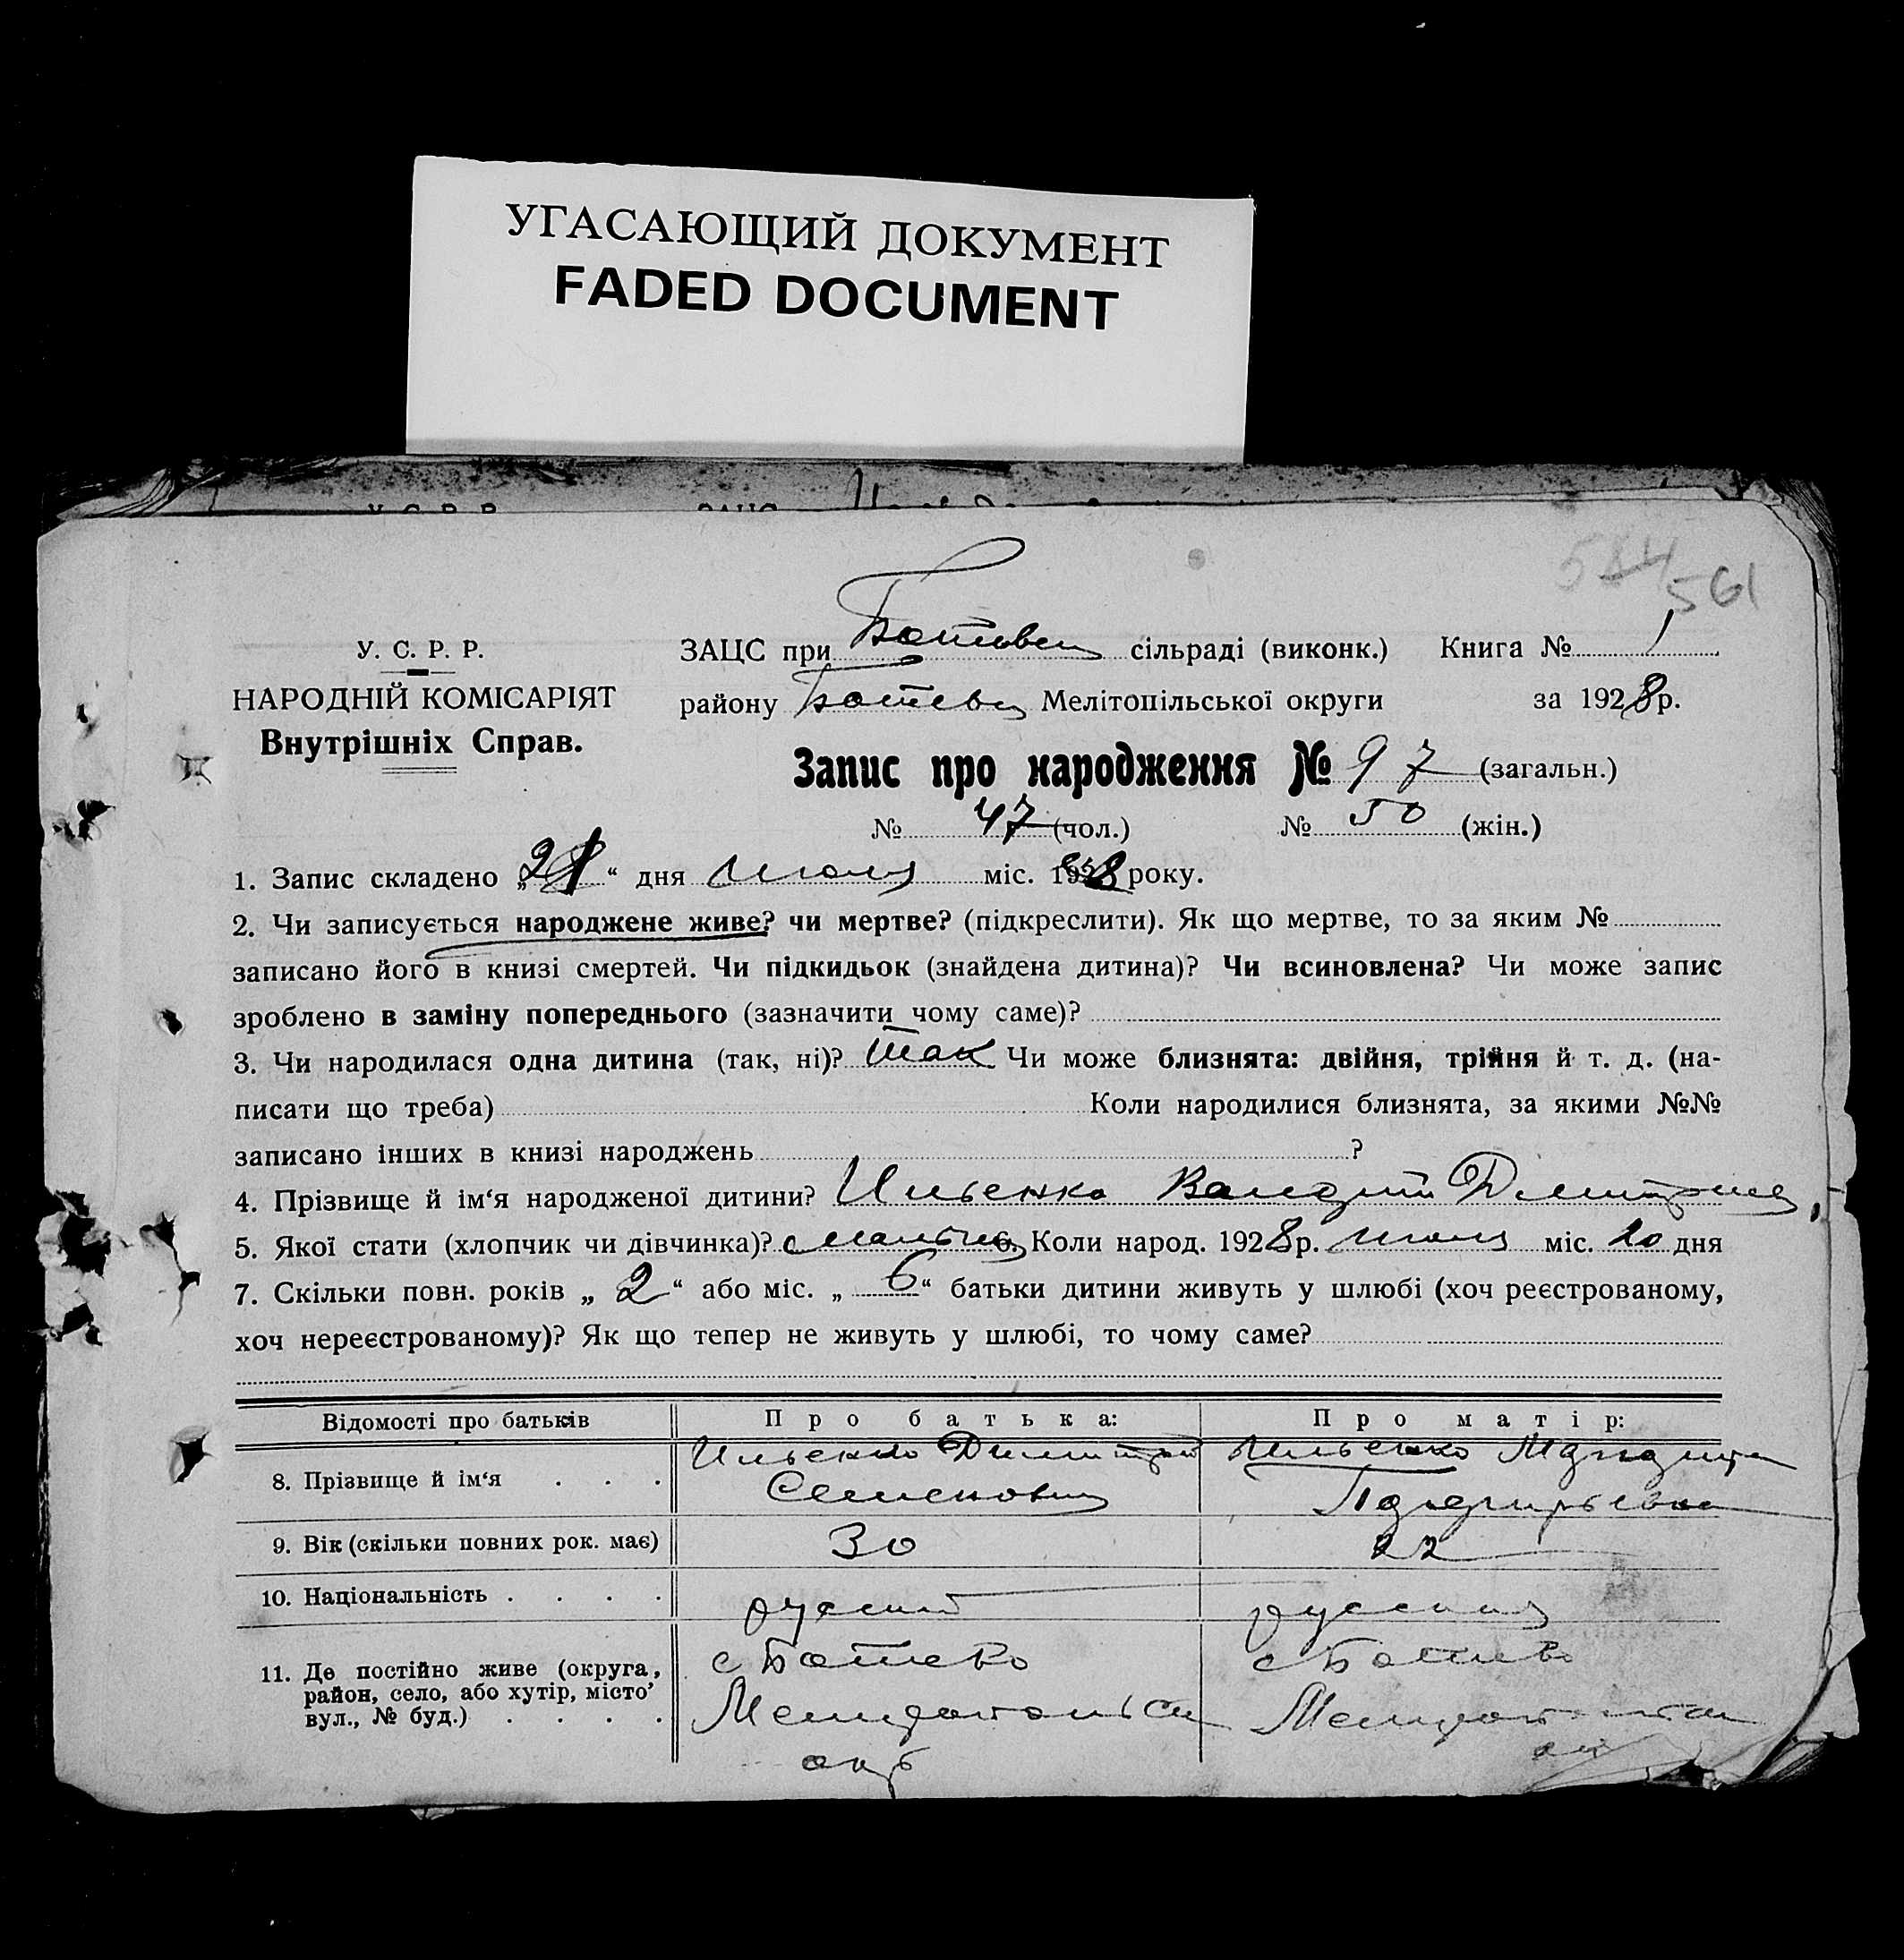 УГАСАЮЩИЙ ДОКУМЕНТ
FADED DOCUMENT
561
У. С. Р. Р.
НАРОДНІЙ КОМІСАРІЯТ
Внутрішніх Справ.
ЗАЦС при сільраді (виконк.) Книга № 1
району Мелітопільської округи за 1928 р.
Запис про народження № 97 (загальн.)
№ 47 (чол.) № 50 (жін.)
1. Запис складено „ “ дня июля міс. 1928 року.
2. Чи записується народжене живе? чи мертве? (підкреслити). Як що мертве, то за яким №
записано його в книзі смертей. Чи підкидьок (знайдена дитина)? Чи всиновлена? Чи може запис
зроблено в заміну попереднього (зазначити чому саме)?
3. Чи народилася одна дитина (так, ні)? Так Чи може близнята: двійня, трійня й т. д. (на-
писати що треба) Коли народилися близнята, за якими №№
записано інших в книзі народжень ?
4. Прізвище й ім‘я народженої дитини? Ильенко
5. Якої стати (хлопчик чи дівчинка)? 6. Коли народ. 1928 р. июля міс. 20 дня
7. Скільки повн. років „ 2 “ або міс. „ 6 “ батьки дитини живуть у шлюбі (хоч реєстрованому,
хоч нереєстрованому)? Як що тепер не живуть у шлюбі, то чому саме?
Відомості про батьків Про батька: Про матір:
8. Прізвище й ім‘я . . . Ильенко Димитрий Ильенко
Семенович
9. Вік (скільки повних рок. має) 30 22
10. Національність . . . . русский русская
11. Де постійно живе (округа, с Ботево с Ботево
район, село, або хутір, місто’
вул., № буд.) . . . . Мелитопольск
окр